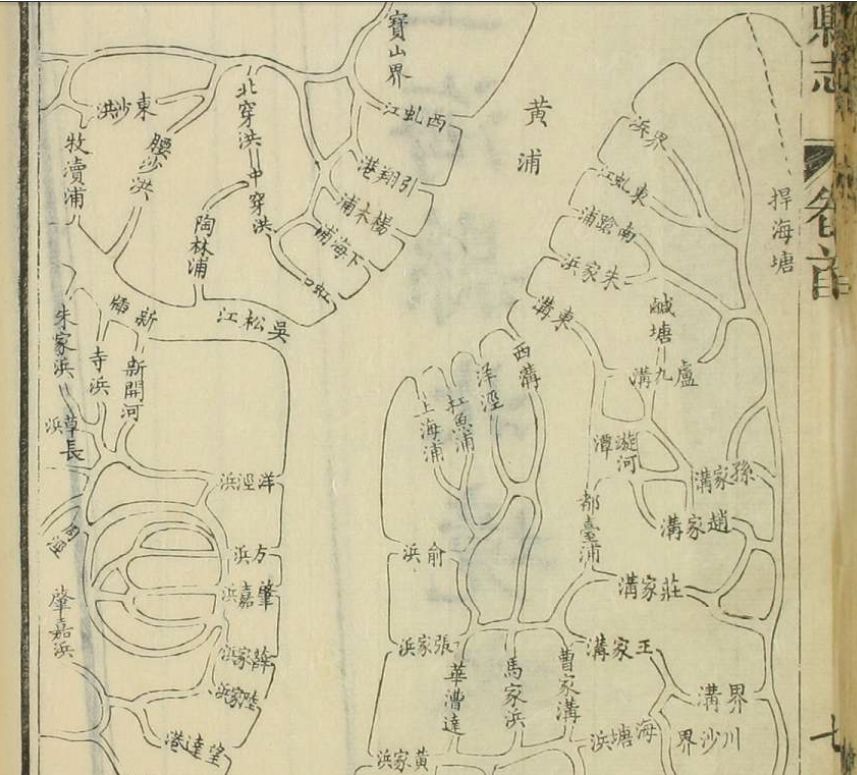 縣志
卷首
七
捍海塘
黃浦
寶山界
西虬江
引翔港
楊木浦
下海浦
虹口
北穿洪
中穿洪
東沙洪
腰沙洪
牧瀆浦
陶林浦
吳松江
新
寺浜
新開河
朱家浜
長草浜
洋涇浜
方浜
肇嘉浜
薛家浜
陸家浜
望達港
周涇
肇嘉浜
界浜
東虬江
南蹌浦
朱家浜
東溝
西溝
洋涇
扛魚浦
上海浦
鹹塘
盧九溝
漩河潭
孫家溝
趙家溝
都臺浦
莊家溝
王家溝
界溝
川沙界
海塘浜
曹家溝
馬家浜
華漕達
俞浜
張家浜
黃家浜